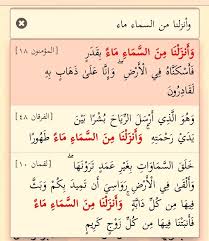 وأنزلنا من السماء ماء
وَأَنْزَلْنَا مِنَ السَّمَاءِ مَاءً بِقَدَرٍ [المؤمنون ١٨]
فَأَسْكَنَّاهُ فِي الْأَرْضِ وَإِنَّا عَلَىٰ ذَهَابٍ بِهِ
لَقَادِرُونَ
وَهُوَ الَّذِي أَرْسَلَ الرِّيَاحَ بُشْرًا بَيْنَ [الفرقان ٤٨]
يَدَيْ رَحْمَتِهِ وَأَنْزَلْنَا مِنَ السَّمَاءِ مَاءً طَهُورًا
خَلَقَ السَّمَاوَاتِ بِغَيْرِ عَمَدٍ تَرَوْنَهَا [لقمان ١٠]
وَأَلْقَىٰ فِي الْأَرْضِ رَوَاسِيَ أَنْ تَمِيدَ بِكُمْ وَبَثَّ
فِيهَا مِنْ كُلِّ دَابَّةٍ وَأَنْزَلْنَا مِنَ السَّمَاءِ مَاءً
فَأَنْبَتْنَا فِيهَا مِنْ كُلِّ زَوْجٍ كَرِيمٍ